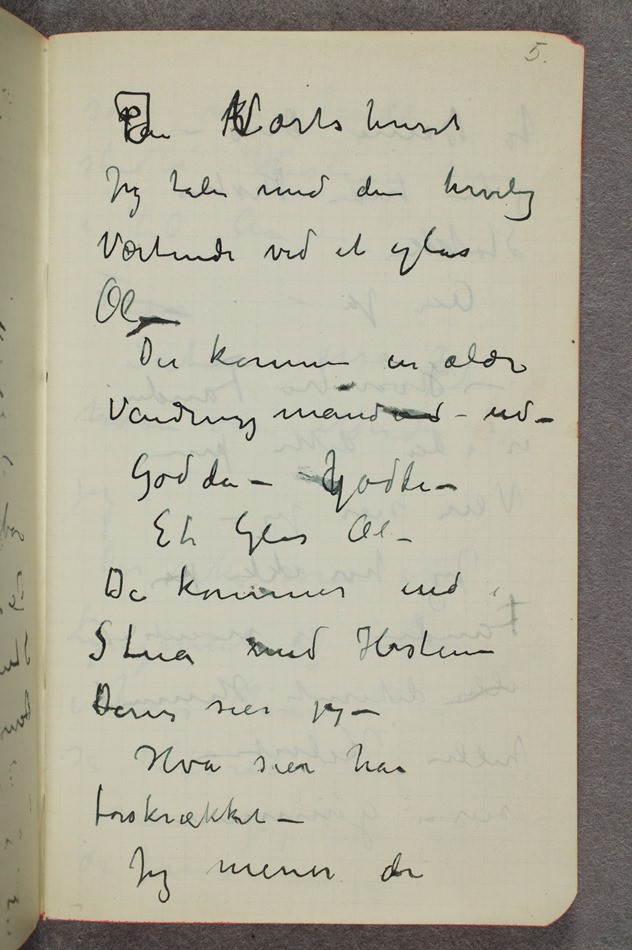 5.
Paa Værtshuset
Jeg taler med den hvide
Værtinde ved et glas
Øl –
Der kommer en ældre
Vandringsmand ind –
Godda – Godda –
Et Glas Øl –
De kommer ind i
Stua med Hesten
Deres sier jeg –
Hva sier han
forskrækket –
Jeg mener de